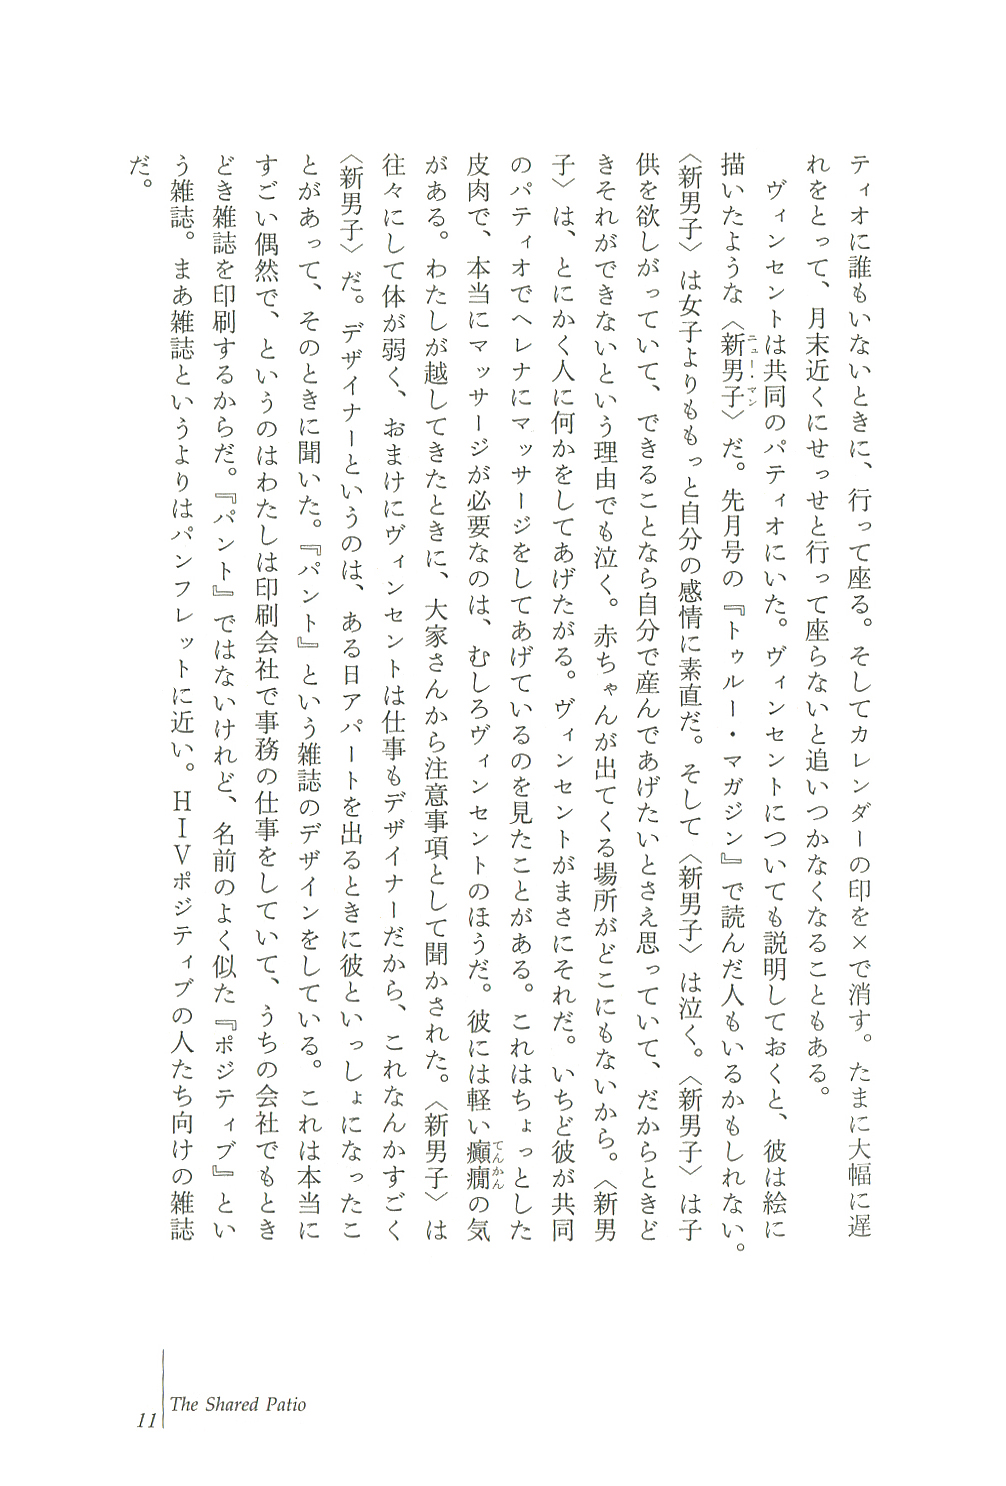 ティオに誰もいないときに、行って座る。そしてカレンダーの印を×で消す。たまに大幅に遅
れをとって、月末近くにせっせと行って座らないと追いつかなくなることもある。
ヴィンセントは共同のパティオにいた。ヴィンセントについても説明しておくと、彼は絵に
描いたような〈新男子〉だ。先月号の『トゥルー・マガジン』で読んだ人もいるかもしれない。
ニュー・マン
〈新男子〉は女子よりももっと自分の感情に素直だ。そして〈新男子〉は泣く。〈新男子〉は子
供を欲しがっていて、できることなら自分で産んであげたいとさえ思っていて、だからときど
きそれができないという理由でも泣く。赤ちゃんが出てくる場所がどこにもないから。〈新男
子〉は、とにかく人に何かをしてあげたがる。ヴィンセントがまさにそれだ。いちど彼が共同
のパティオでヘレナにマッサージをしてあげているのを見たことがある。これはちょっとした
皮肉で、本当にマッサージが必要なのは、むしろヴィンセントのほうだ。彼には軽い癲癇の気
てんかん
がある。わたしが越してきたときに、大家さんから注意事項として聞かされた。〈新男子〉は
往々にして体が弱く、おまけにヴィンセントは仕事もデザイナーだから、これなんかすごく
〈新男子〉だ。デザイナーというのは、ある日アパートを出るときに彼といっしょになったこ
とがあって、そのときに聞いた。『パント』という雑誌のデザインをしている。これは本当に
すごい偶然で、というのはわたしは印刷会社で事務の仕事をしていて、うちの会社でもとき
どき雑誌を印刷するからだ。『パント』ではないけれど、名前のよく似た『ポジティブ』とい
う雑誌。まあ雑誌というよりはパンフレットに近い。HIVポジティブの人たち向けの雑誌
だ。
The Shared Patio
11